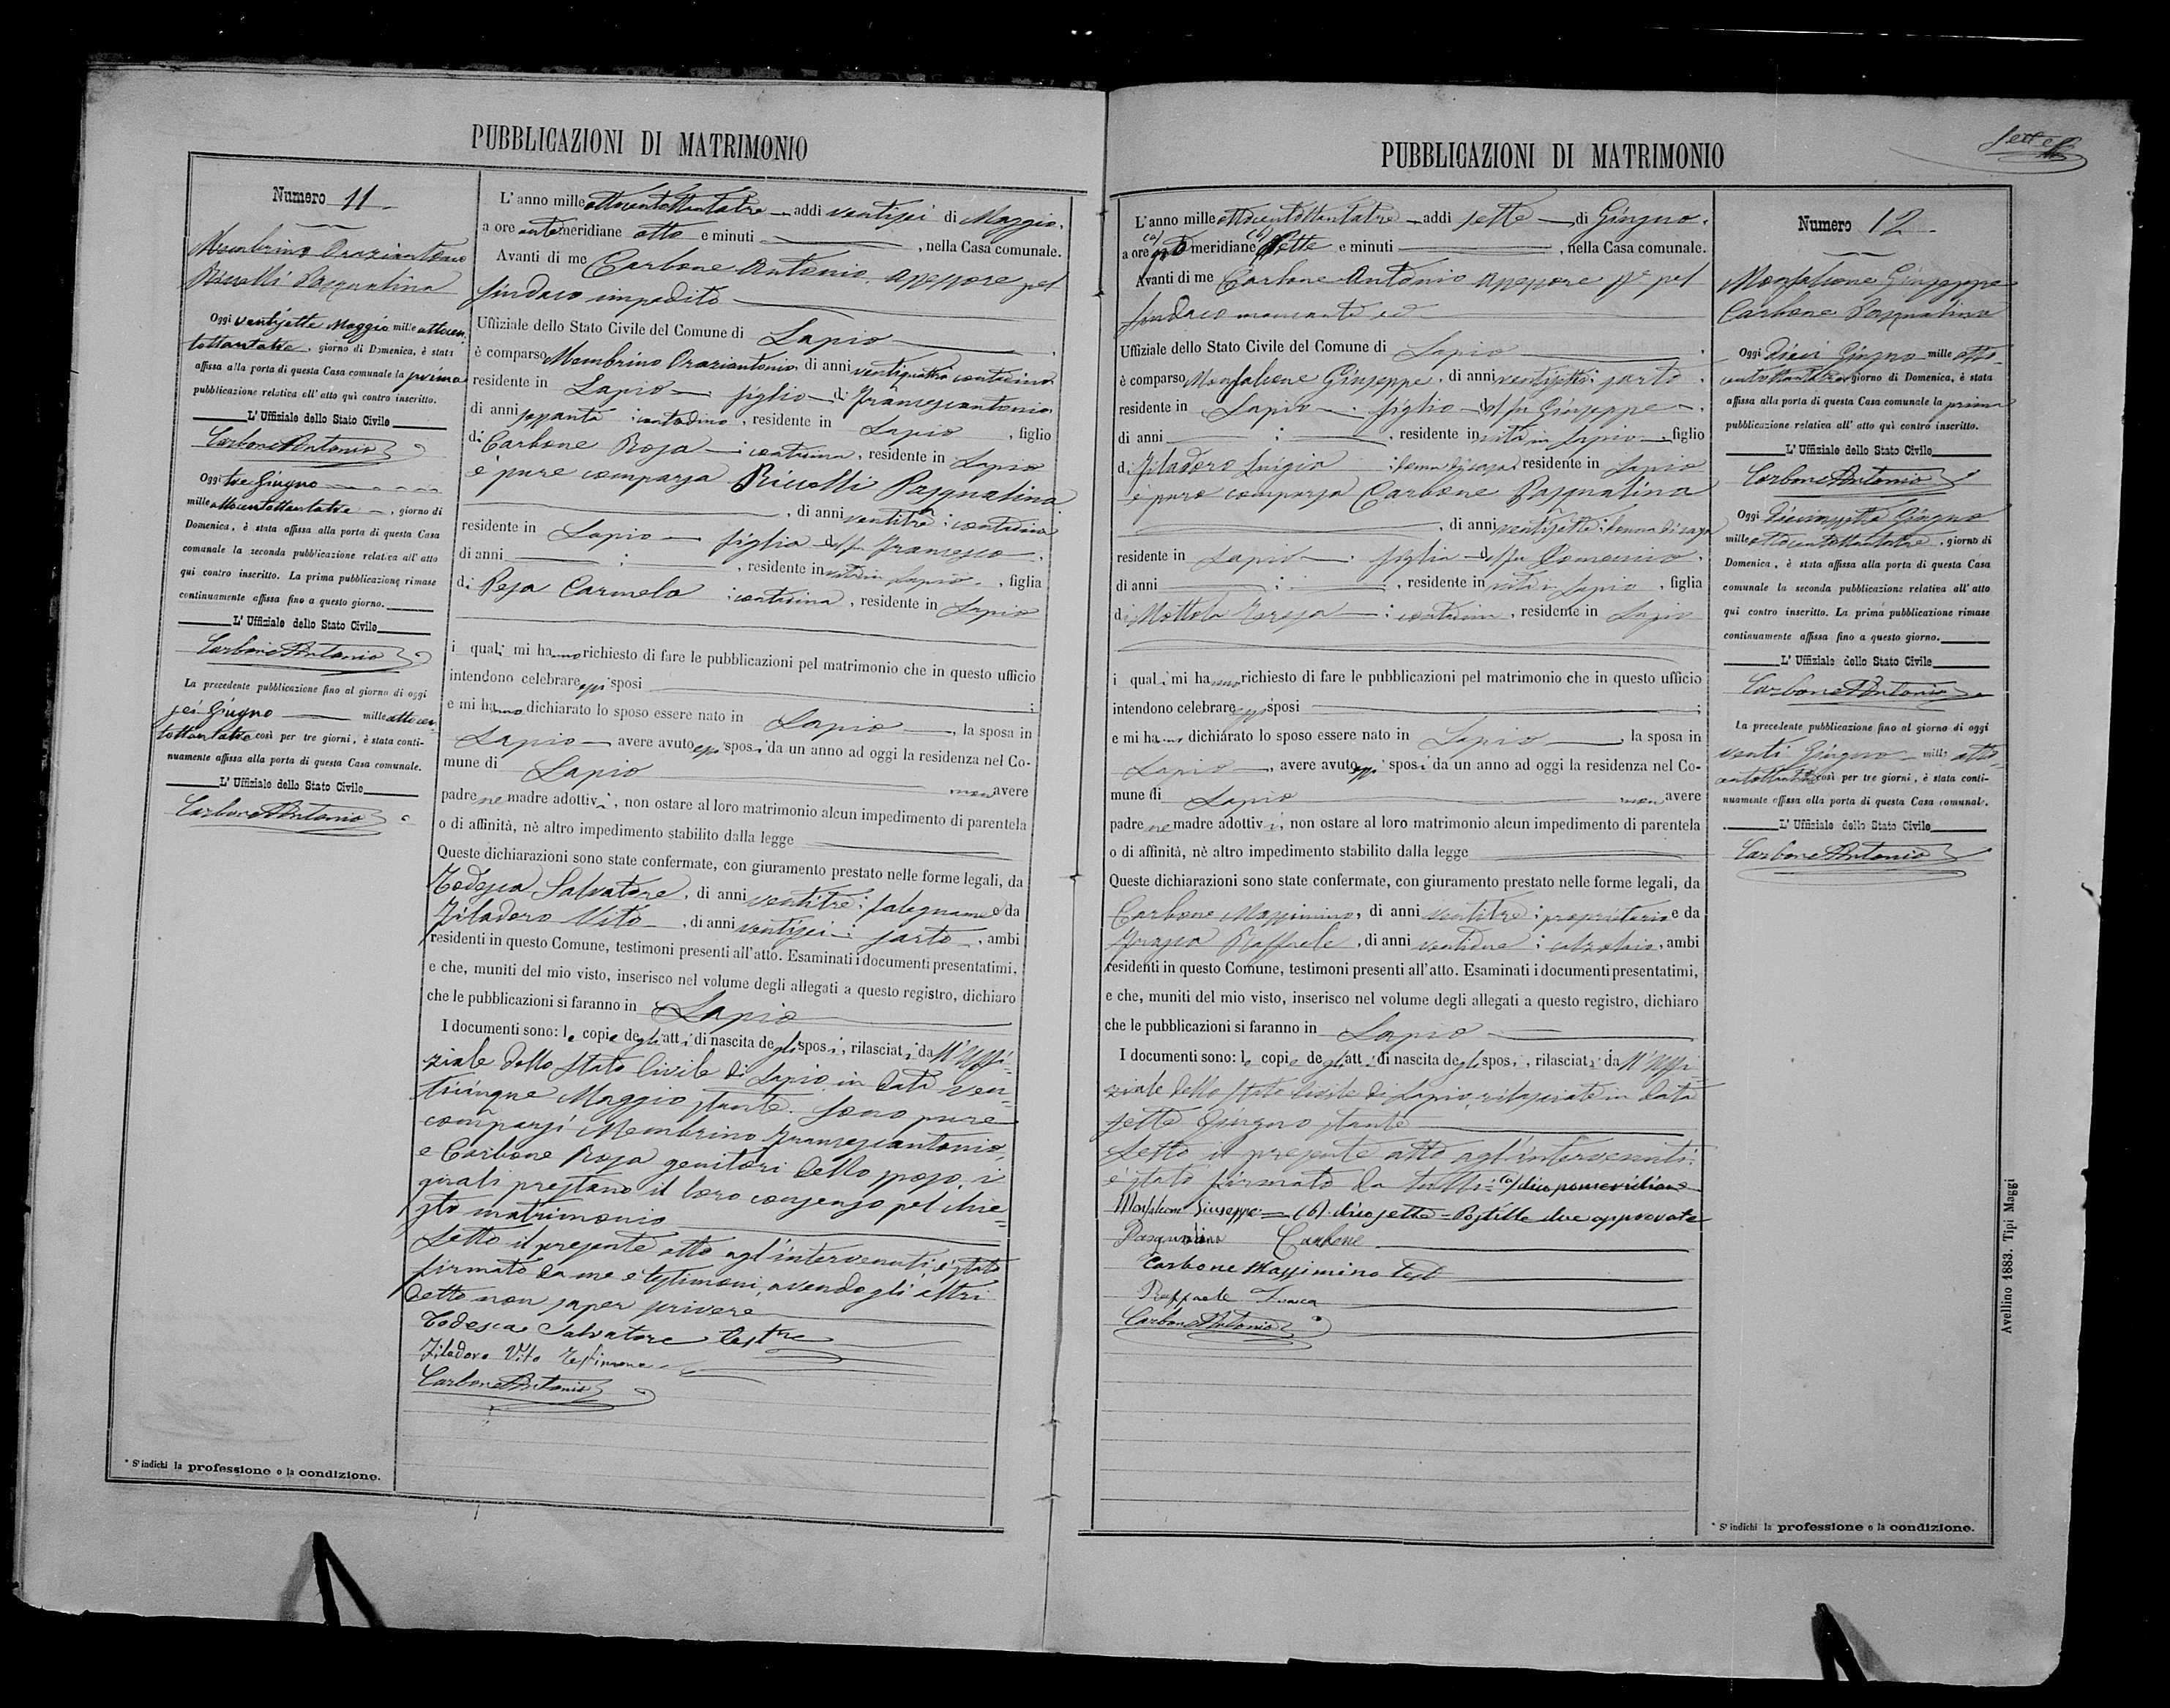 PUBBLICAZIONI DI MATRIMONIO
Numero 11
Membrino Oraziantonio
Riccelli Pasqualina
Oggi ventisette Maggio mille ottocen
tottantatre, giorno di Domenica, è stata
affissa alla porta di questa Casa comunale la prima
pubblicazione relativa all' atto quì contro inscritto.
L' Uffiziale dello Stato Civile
Carbone Antonio
Oggi tre Giugno
mille ottocentottantatre, giorno di
Domenica, è stata affissa alla porta di questa Casa
comunale la seconda pubblicazione relativa all' atto
quì contro inscritto. La prima pubblicazione rimase
continuamente affissa fino a questo giorno.
L' Uffiziale dello Stato Civile
Carbone Antonio
La precedente pubblicazione fino al giorno di oggi
sei Giugno mille ottocen
tottantatre così per tre giorni, è stata conti-
nuamente affissa alla porta di questa Casa comunale.
L' Uffiziale dello Stato Civile
Carbone Antonio
* S' indichi la professione o la condizione.
L' anno mille ottocentottantatre addì ventisei di Maggio,
a ore antemeridiane otto e minuti , nella Casa comunale.
Avanti di me Carbone Antonio Assessore pel
Sindaco impedito
Uffiziale dello Stato Civile del Comune di Lapio
è comparso Membrino Oraziantonio, di anni ventiquattro contadino
residente in Lapio figlio di Francescantonio
di anni sessanta contadino, residente in Lapio, figlio
di Carbone Rosa contadina, residente in Lapio
è pure comparsa Riccelli Pasqualina
, di anni ventitre contadina
residente in Lapio figlia del fu Francesco
di anni , residente in vita in Lapio, figlia
di Pesa Carmela contadina, residente in Lapio
i quali mi hanno richiesto di fare le pubblicazioni pel matrimonio che in questo ufficio
intendono celebrare essi sposi ;
e mi hanno dichiarato lo sposo essere nato in Lapio, la sposa in
Lapio avere avuto essi sposi da un anno ad oggi la residenza nel Co-
mune di Lapio non avere
padre ne madre adottivi, non ostare al loro matrimonio alcun impedimento di parentela
o di affinità, nè altro impedimento stabilito dalla legge
Queste dichiarazioni sono state confermate, con giuramento prestato nelle forme legali, da
Todesca Salvatore, di anni ventitre falegname e da
Filadoro Vito, di anni ventisei sarto, ambi
residenti in questo Comune, testimoni presenti all' atto. Esaminati i documenti presentatimi,
e che, muniti del mio visto, inserisco nel volume degli allegati a questo registro, dichiaro
che le pubblicazioni si faranno in Lapio
I documenti sono: le copie degli atti di nascita degli sposi, rilasciati dall'Uffi-
ziale dello Stato Civile di Lapio in data ven-
ticinque Maggio stante. Sono pure
comparsi Membrino Francescantonio
e Carbone Rosa genitori dello sposo, i
quali prestano il loro consenso pel chie-
sto matrimonio
Letto il presente atto agl'intervenuti, è stato
firmato da me e testimoni, avendo gli altri
detto non saper scrivere
Todesca Salvatore Testne
Filadoro Vito Testimone
Carbone Antonio
PUBBLICAZIONI DI MATRIMONIO
sette
L' anno mille ottocentottantatre addì sette di Giugno,
a ore (a) meridiane (b) sette e minuti , nella Casa comunale.
Avanti di me Carbone Antonio Assessore pel
Sindaco
Uffiziale dello Stato Civile del Comune di Lapio
è comparso Monfalcone Giuseppe, di anni ventisette sarto
residente in Lapio figlio del fu Giuseppe
di anni ; , residente in vita in Lapio figlio
di Filadoro Luigia donna di casa, residente in Lapio
è pure comparsa Carbone Pasqualina
, di anni ventisette donna di casa
residente in Lapio figlia del fu Domenico
di anni ; , residente in vita in Lapio, figlia
di Mottola Teresa contadina, residente in Lapio
i quali mi hanno richiesto di fare le pubblicazioni pel matrimonio che in questo ufficio
intendono celebrare essi sposi ;
e mi hanno dichiarato lo sposo essere nato in Lapio, la sposa in
Lapio, avere avuto essi sposi da un anno ad oggi la residenza nel Co-
mune di Lapio non avere
padre ne madre adottivi, non ostare al loro matrimonio alcun impedimento di parentela
o di affinità, nè altro impedimento stabilito dalla legge
Queste dichiarazioni sono state confermate, con giuramento prestato nelle forme legali, da
Carbone Massimino, di anni ventitre proprietario e da
Raffaele, di anni ventidue calzolaio, ambi
residenti in questo Comune, testimoni presenti all' atto. Esaminati i documenti presentatimi,
e che, muniti del mio visto, inserisco nel volume degli allegati a questo registro, dichiaro
che le pubblicazioni si faranno in Lapio
I documenti sono: le copie degli atti di nascita degli sposi, rilasciati dall'Uffi-
ziale dello Stato Civile di Lapio, rilasciate in data
sette Giugno stante
Letto il presente atto agl'intervenuti
è stato firmato da tutti = (a) dico pomeridiane
Monfalcone Giuseppe = (b) dico sette = Postille due approvate
Pasqualina Carbone
Carbone Massimino Test
Raffaele
Carbone Antonio
Numero 12
Monfalcone Giuseppe
Carbone Pasqualina
Oggi dieci Giugno mille otto
centottantatre, giorno di Domenica, è stata
affissa alla porta di questa Casa comunale la prima
pubblicazione relativa all' atto quì contro inscritto.
L' Uffiziale dello Stato Civile
Carbone Antonio
Oggi diecissette Giugno
mille ottocentottantatre, giorno di
Domenica, è stata affissa alla porta di questa Casa
comunale la seconda pubblicazione relativa all' atto
quì contro inscritto. La prima pubblicazione rimase
continuamente affissa fino a questo giorno.
L' Uffiziale dello Stato Civile
Carbone Antonio
La precedente pubblicazione fino al giorno di oggi
venti Giugno mille otto
centottantatre così per tre giorni, è stata conti-
nuamente affissa alla porta di questa Casa comunale.
L' Uffiziale dello Stato Civile
Carbone Antonio
* S' indichi la professione o la condizione.
Avellino 1883. Tipi Maggi